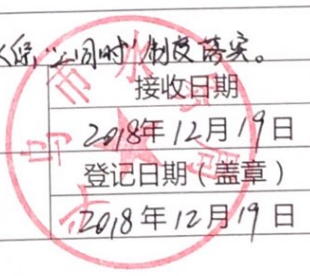 保"三同时"制度落实。
接收日期
2018年12月19日
登记日期(盖章)
2018年12月19日